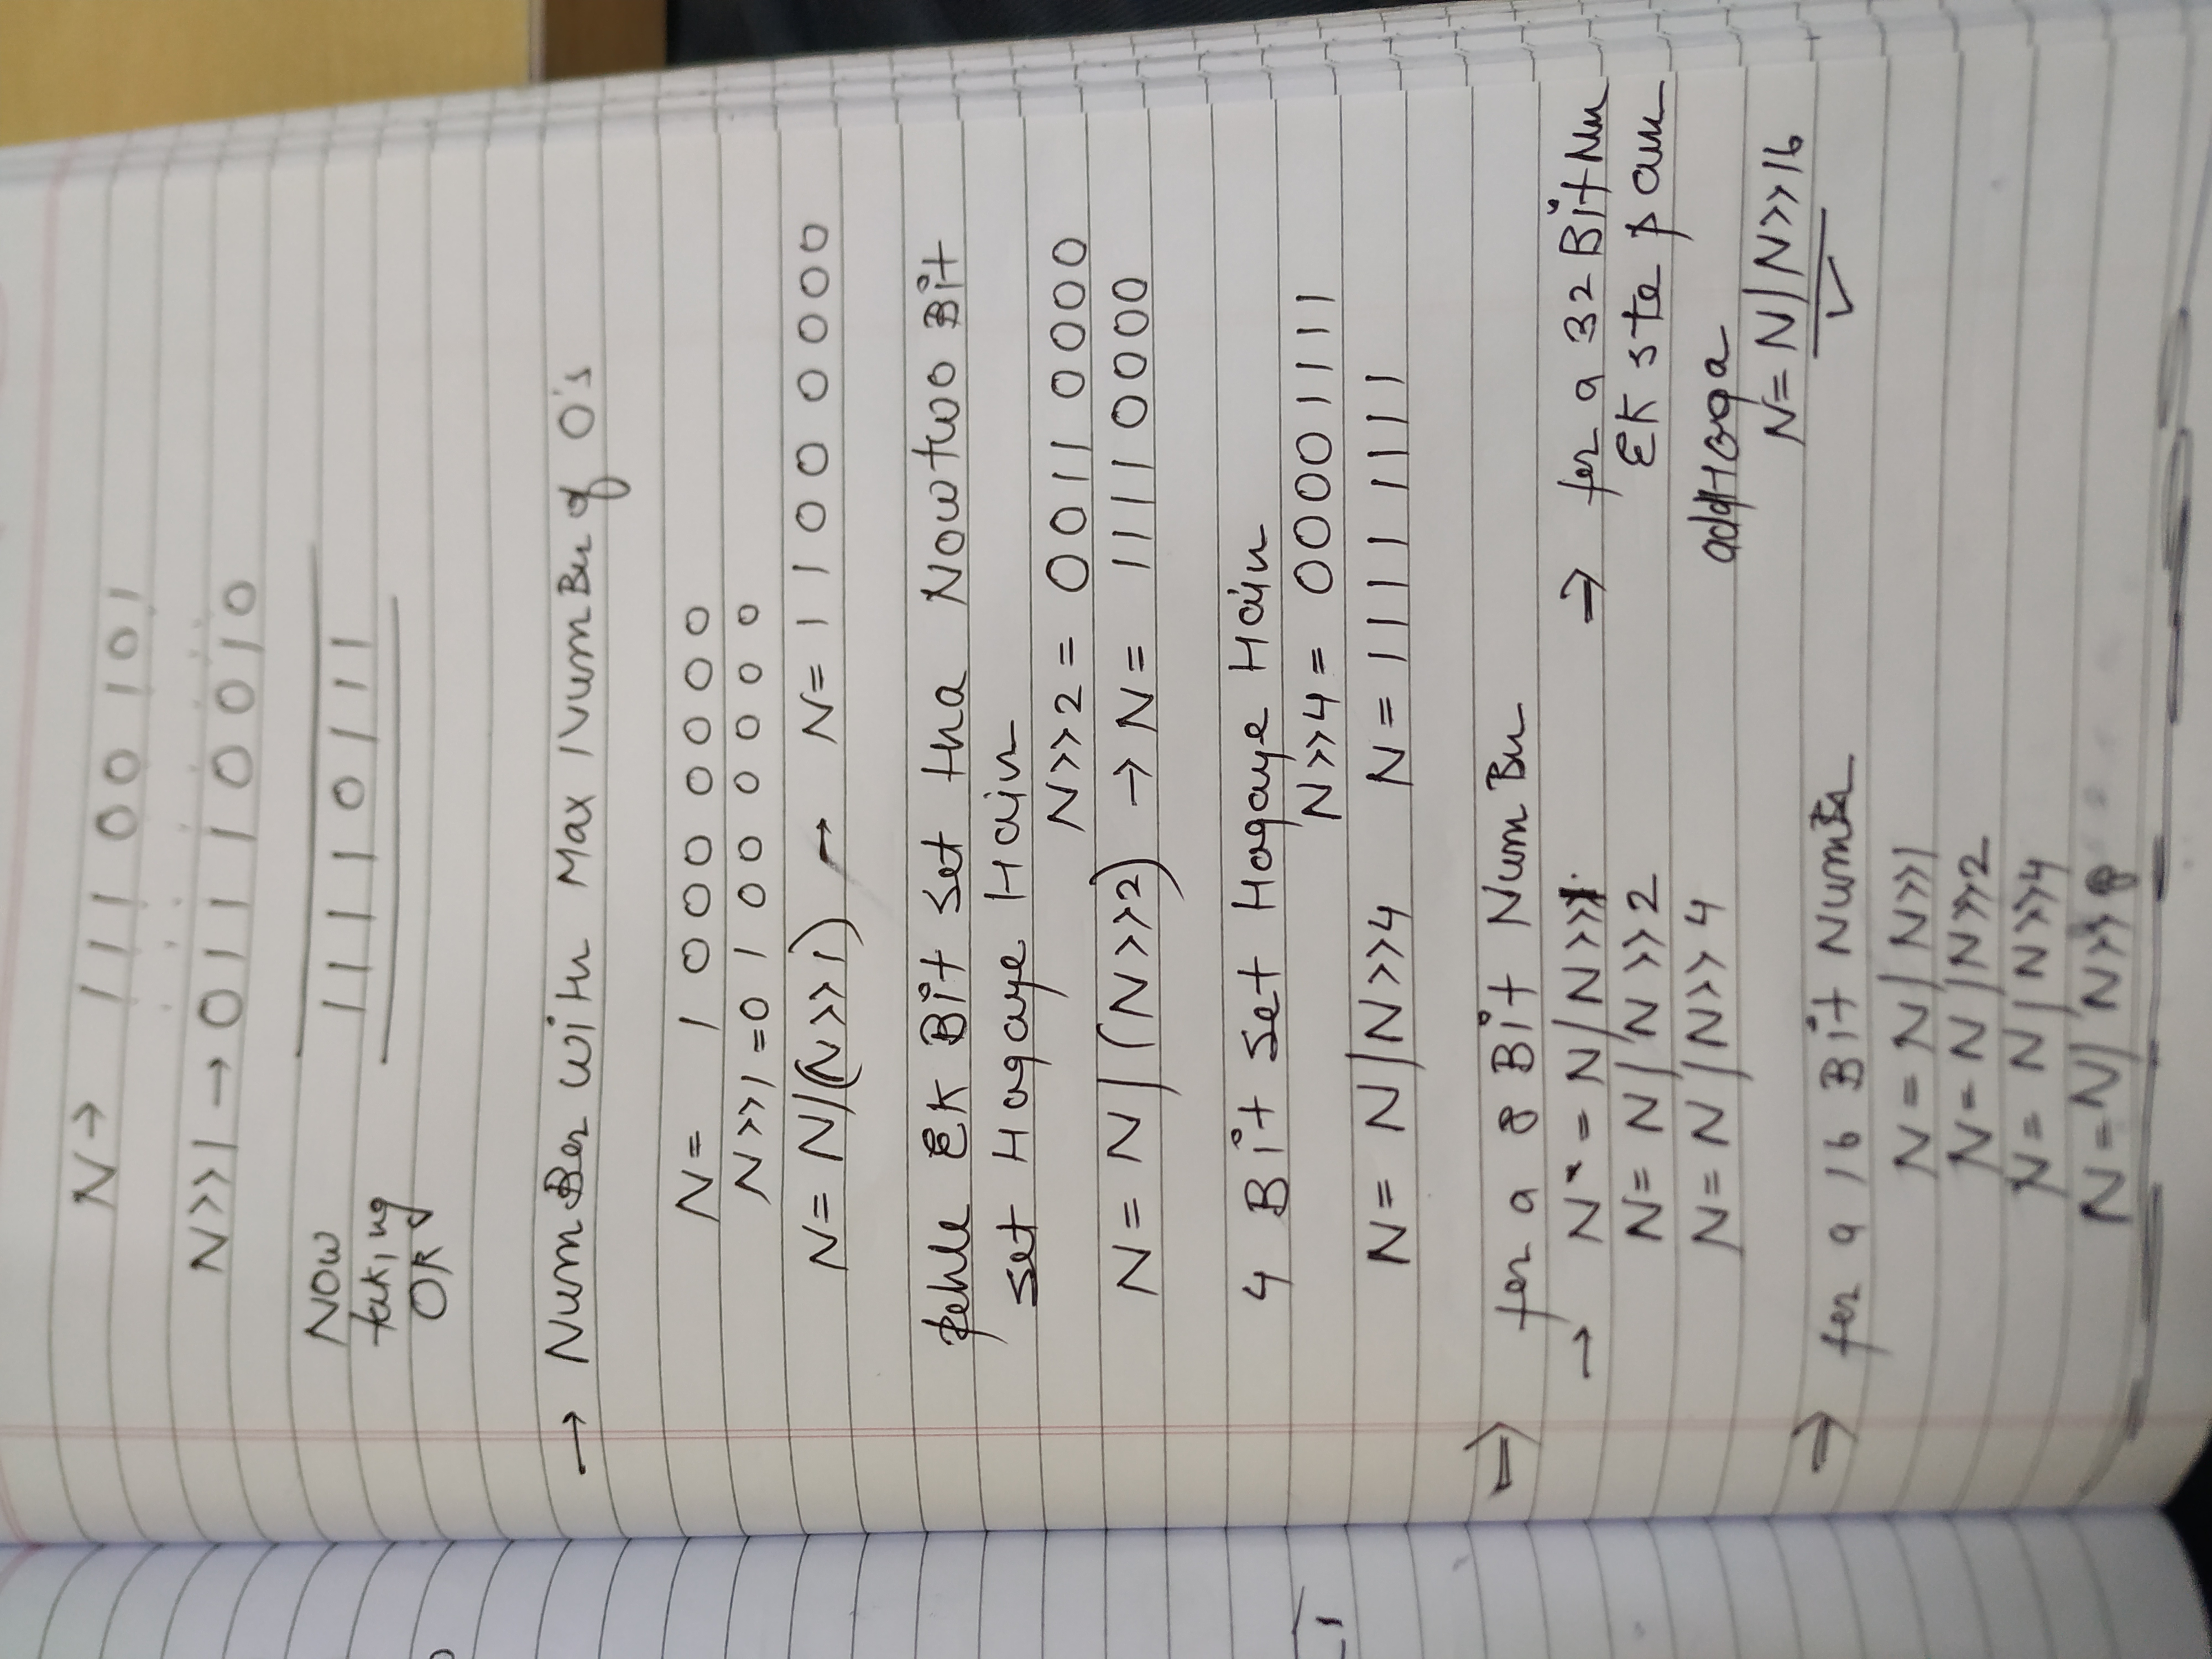 N → 1 1 1 0 0 1 0 1
N>>1 → 0 1 1 1 0 0 1 0
NOW
taking
OR
1 1 1 1 0 1 1 1
→ NumBer with Max NumBer of 0's
N = 1 0 0 0 0 0 0 0
N>>1 = 0 1 0 0 0 0 0 0
N = N|(N>>1) → N = 1 1 0 0 0 0 0 0
pehle EK Bit set tha Now two Bit
set Hogaye Hain
N>>2 = 0 0 1 1 0 0 0 0
N = N | (N>>2) → N = 1 1 1 1 0 0 0 0
4 Bit set Hogaye Hain
N>>4 = 0 0 0 0 1 1 1 1
N = N|N>>4 N = 1 1 1 1 1 1 1 1
⇒ for a 8 Bit NumBer
→ N = N|N>>1
N = N|N>>2
N = N|N>>4
⇒ for a 32 Bit Num
EK step aur
add Hoga
N = N|N>>16
⇒ for a 16 Bit Number
N = N|N>>1
N = N|N>>2
N = N|N>>4
N = N|N>>8